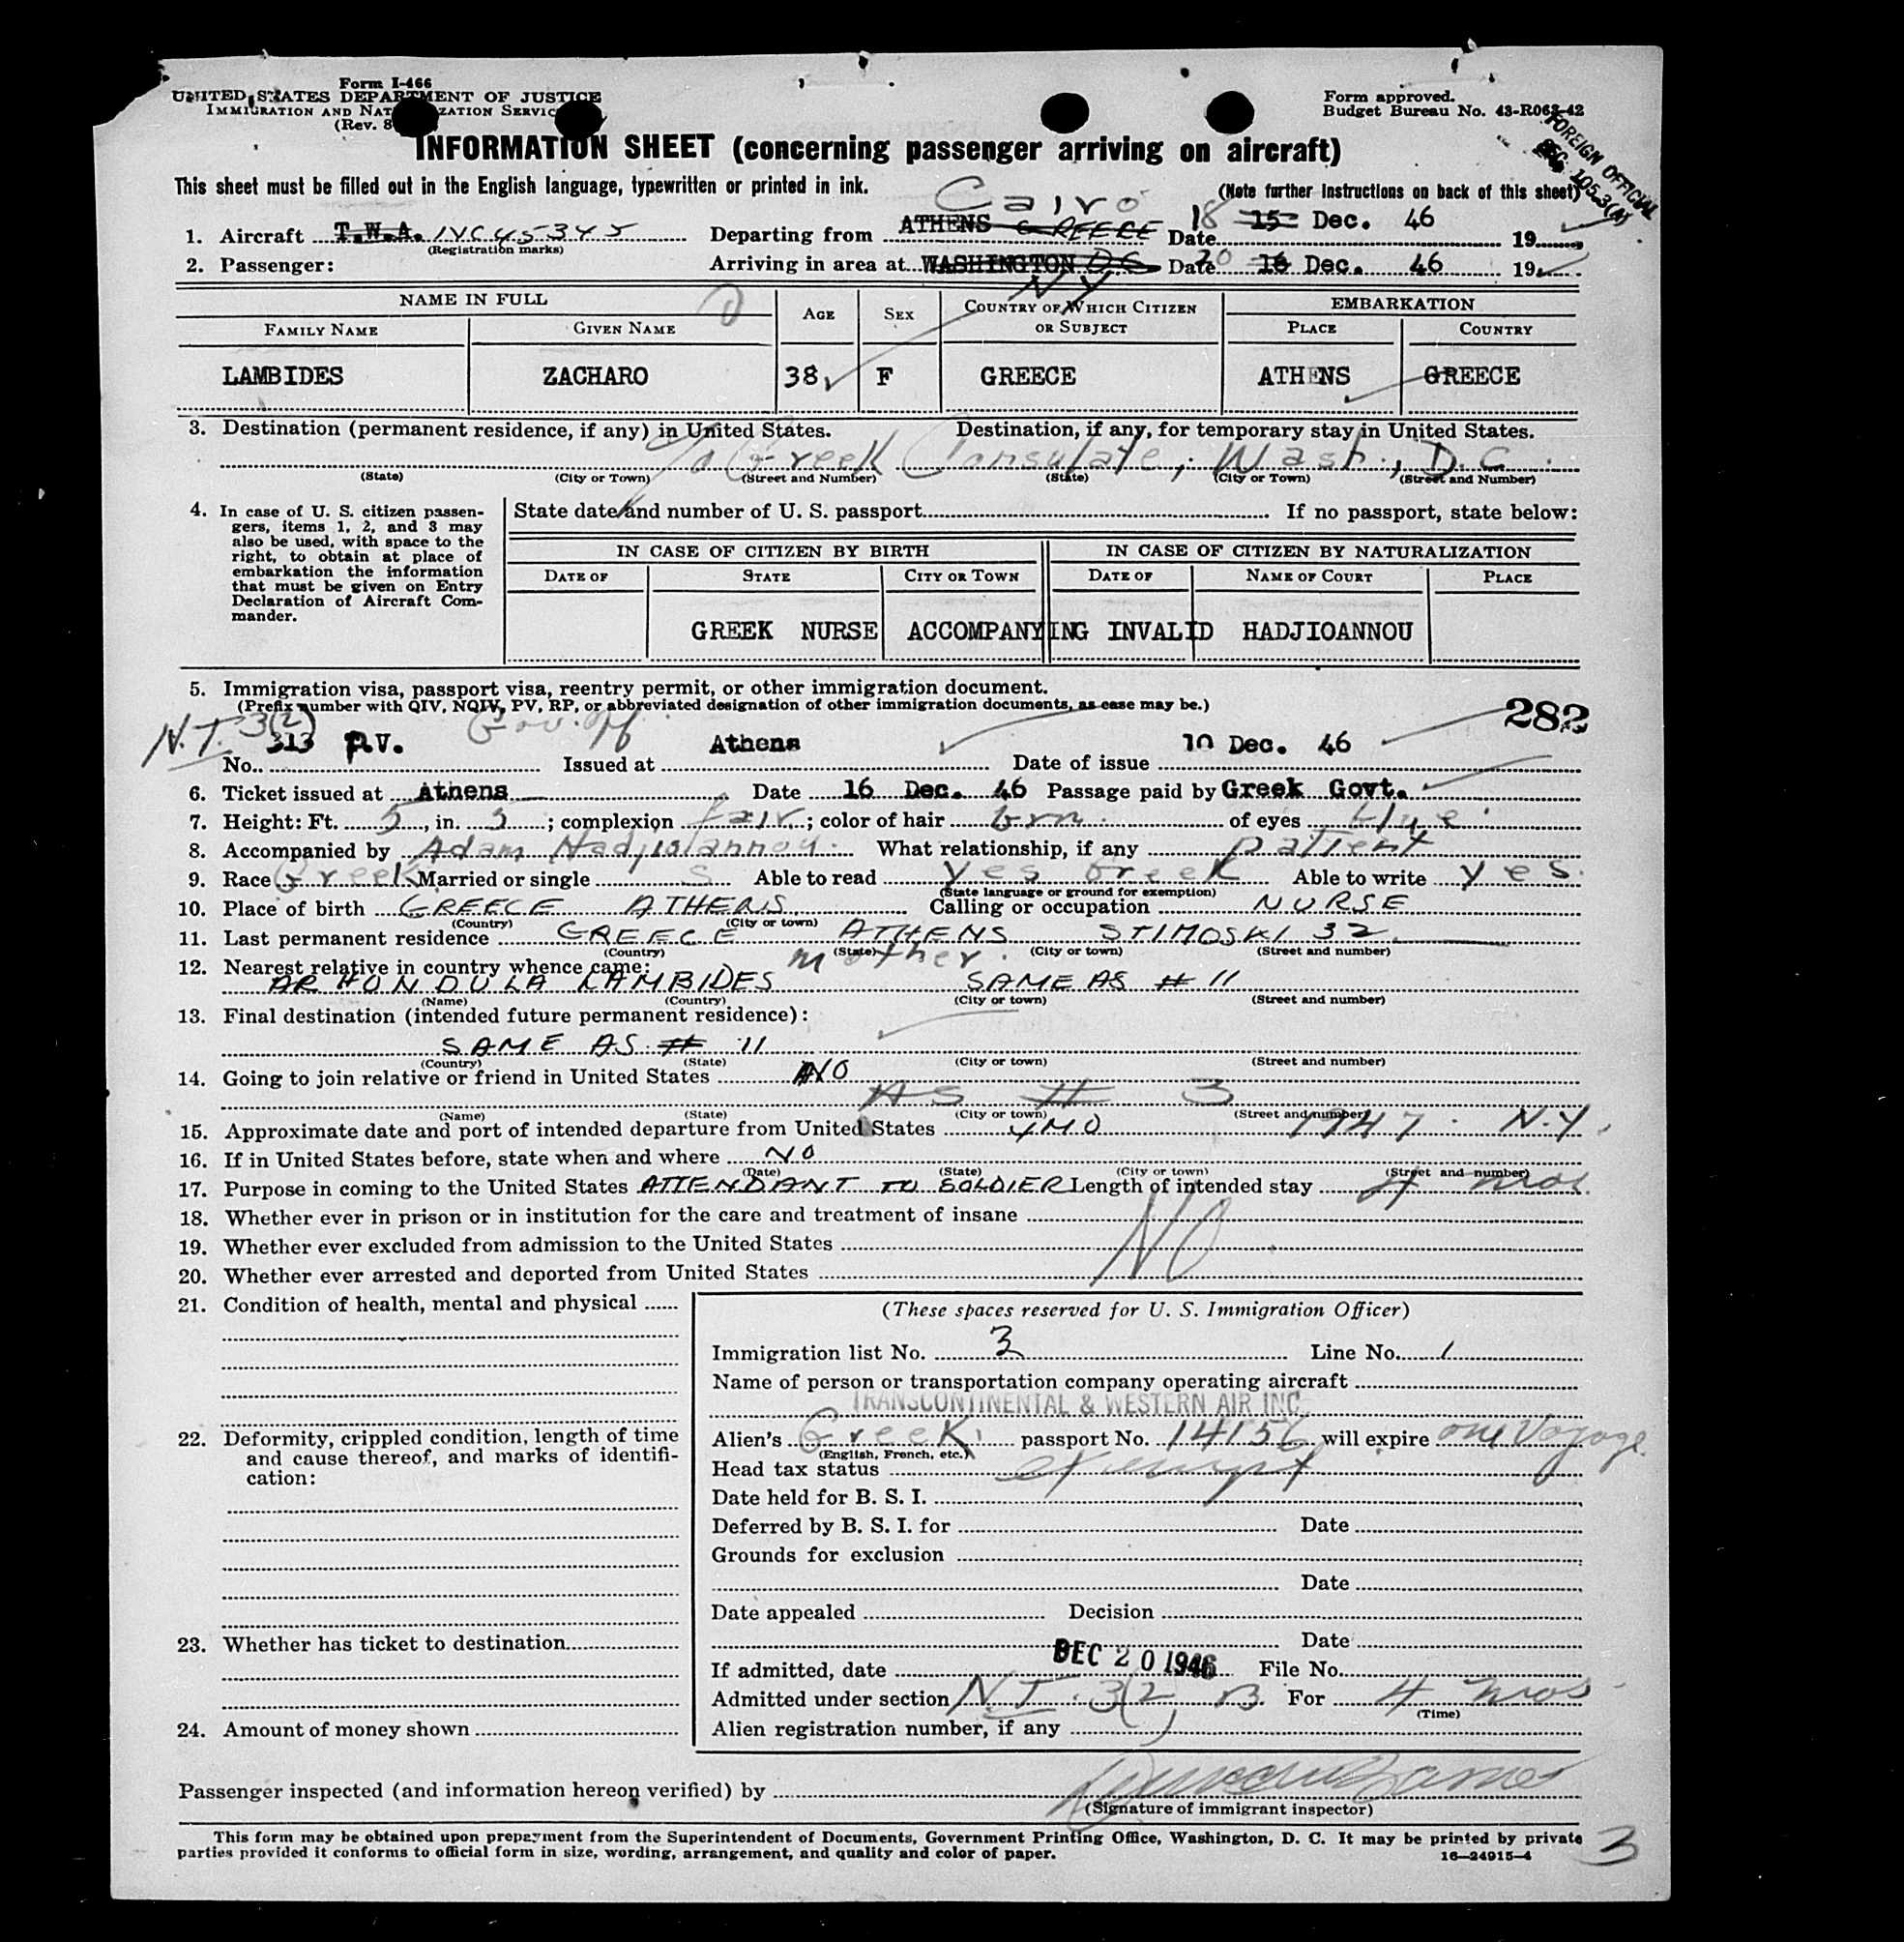 Form I-466
UNITED STATES DEPARTMENT OF JUSTICE
IMMIGRATION AND NAT ZATION SERVIC
(Rev. 8
Form approved.
Budget Bureau No. 43-R063-42
FOREIGN OFFICIAL
SEC. 105.3(A)
INFORMATION SHEET (concerning passenger arriving on aircraft)
This sheet must be filled out in the English language, typewritten or printed in ink.
(Note further instructions on back of this sheet)
Cairo
1. Aircraft T.W.A. NC 45345 Departing from ATHENS GREECE Date 18 15 Dec. 46 19
(Registration marks)
2. Passenger: Arriving in area at WASHINGTON DC Date 20 16 Dec. 46 19
NY
NAME IN FULL AGE SEX COUNTRY OF WHICH CITIZEN OR SUBJECT EMBARKATION
FAMILY NAME GIVEN NAME PLACE COUNTRY
LAMBIDES ZACHARO 38 F GREECE ATHENS GREECE
3. Destination (permanent residence, if any) in United States. Destination, if any, for temporary stay in United States.
c/o Greek Consulate, Wash., D.C.
(State) (City or Town) (Street and Number) (State) (City or Town) (Street and Number)
4. In case of U. S. citizen passen-
gers, items 1, 2, and 3 may
also be used, with space to the
right, to obtain at place of
embarkation the information
that must be given on Entry
Declaration of Aircraft Com-
mander.
State date and number of U. S. passport If no passport, state below:
IN CASE OF CITIZEN BY BIRTH IN CASE OF CITIZEN BY NATURALIZATION
DATE OF STATE CITY OR TOWN DATE OF NAME OF COURT PLACE
GREEK NURSE ACCOMPANYING INVALID HADJIOANNOU
5. Immigration visa, passport visa, reentry permit, or other immigration document.
(Prefix number with QIV, NQIV, PV, RP, or abbreviated designation of other immigration documents, as case may be.)
282
N.T. 3(2) Gov. off
No. 313 P.V. Issued at Athens Date of issue 10 Dec. 46
6. Ticket issued at Athens Date 16 Dec. 46 Passage paid by Greek Govt.
7. Height: Ft. 5, in. 3; complexion fair; color of hair brn. of eyes blue
8. Accompanied by Adam Hadjioannou. What relationship, if any patient
9. Race Greek Married or single S Able to read Yes Greek Able to write yes.
(State language or ground for exemption)
10. Place of birth GREECE ATHENS Calling or occupation NURSE
(Country) (City or town)
11. Last permanent residence GREECE ATHENS STIMOSKI 32
(Country) (State) (City or town) (Street and number)
12. Nearest relative in country whence came: mother.
ARHONDULA LAMBIDES SAME AS # 11
(Name) (Country) (City or town) (Street and number)
13. Final destination (intended future permanent residence):
SAME AS # 11
(Country) (State) (City or town) (Street and number)
14. Going to join relative or friend in United States NO
AS # 3
(Name) (State) (City or town) (Street and number)
15. Approximate date and port of intended departure from United States 4 MO 1947. N.Y.
16. If in United States before, state when and where NO
(Date) (State) (City or town) (Street and number)
17. Purpose in coming to the United States ATTENDANT TO SOLDIER Length of intended stay 4 mos.
18. Whether ever in prison or in institution for the care and treatment of insane
19. Whether ever excluded from admission to the United States NO
20. Whether ever arrested and deported from United States
21. Condition of health, mental and physical
22. Deformity, crippled condition, length of time
and cause thereof, and marks of identifi-
cation:
23. Whether has ticket to destination
24. Amount of money shown
(These spaces reserved for U. S. Immigration Officer)
Immigration list No. 3 Line No. 1
Name of person or transportation company operating aircraft
TRANSCONTINENTAL & WESTERN AIR INC.
Alien's Greek passport No. 14156 will expire one Voyage
(English, French, etc.)
Head tax status exempt
Date held for B. S. I.
Deferred by B. S. I. for Date
Grounds for exclusion
Date
Date appealed Decision
Date
If admitted, date DEC 20 1946 File No.
Admitted under section N.T. 3(2) B. For 4 mos.
(Time)
Alien registration number, if any
Passenger inspected (and information hereon verified) by
(Signature of immigrant inspector)
This form may be obtained upon prepayment from the Superintendent of Documents, Government Printing Office, Washington, D. C. It may be printed by private
parties provided it conforms to official form in size, wording, arrangement, and quality and color of paper.
16—24915-4
3